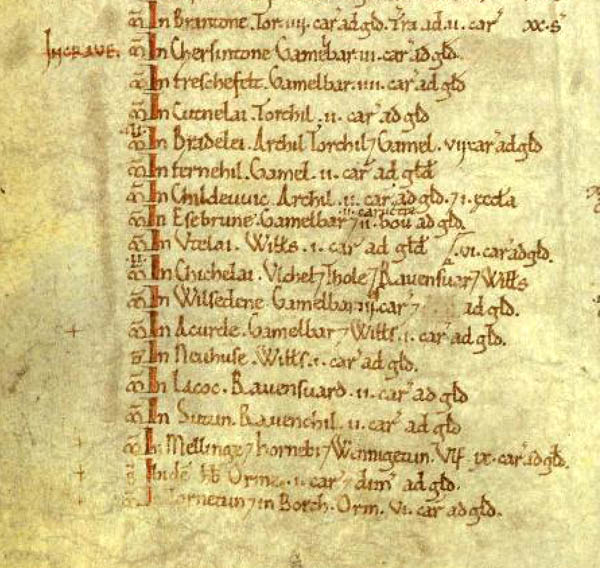 In Brantone. Tor. iiij. car' ad gld. Tra ad. ii. car' xx. s'
IN CRAVE. ⁊ In Chersintone Gamelbar. iii. car' ad gld.
In trescheseld. Gamelbar. iiii. car' ad gld
In Cutnelai. Torchil. ii. car' ad gld
In Bradelei. Archil Torchil ⁊ Gamel. vij car' ad gld
In fernehil. Gamel. ii. car' ad gld
In Childeuuic. Archil. ii. car' ad gld. ⁊ i. æccla
In Esebrune. Gamelbar ii. car' ⁊ ii. bou ad gld.
In Utelai. Wills. i. car' ad gld vi. car' ad gld.
In Chichelai. Vlchel ⁊ Thole ⁊ Rauensuar ⁊ Wills
In Wilsedene. Gamelbar iii. car' ⁊ ad gld.
In Acurde. Gamelbar ⁊ Wills. i. car' ad gld.
In Neuhuse. Wills. i. car' ad gld.
In Lacoc. Rauensuard. ii. car' ad gld
In Sutun. Rauenchil. ii. car' ad gld
In Mellinge ⁊ Hornebi ⁊ Wenningetun. Vlf ix. car' ad gld.
Ibidē hb Orme. i. car' ⁊ dim' ad gld.
Torneturn ⁊ in Borch. Orm. vi. car' ad gld.